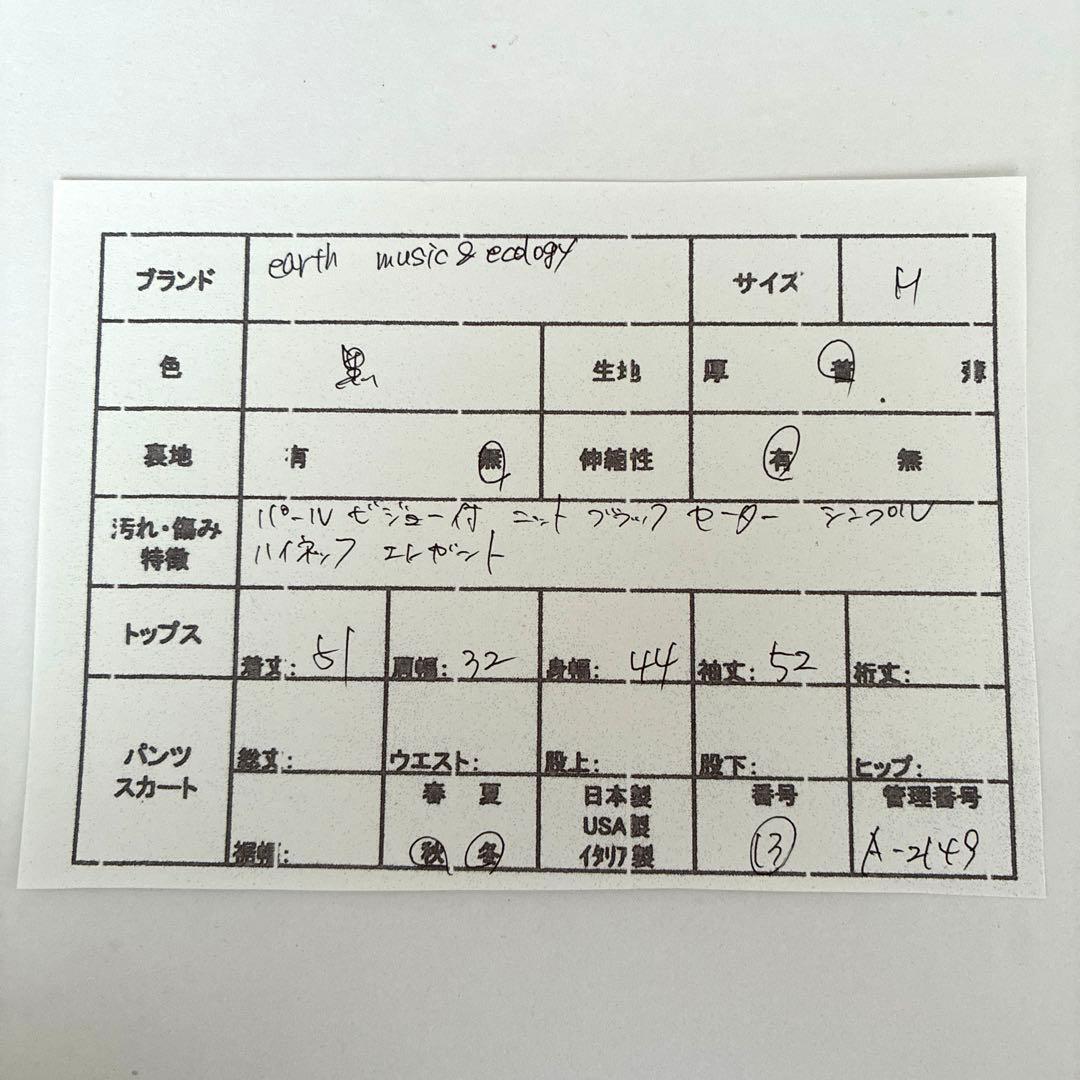 ブランド earth music & ecology サイズ M
色 黒 生地 厚 普 薄
裏地 有 無 伸縮性 有 無
汚れ・傷み 特徴 パール ビジュー付 ニット ブラック セーター シンプル
ハイネック エレガント
トップス 着丈: 51 肩幅: 32 身幅: 44 袖丈: 52 裄丈:
パンツ スカート 総丈: ウエスト: 股上: 股下: ヒップ:
裾幅: 春 夏 日本製 番号 管理番号
USA製
秋 冬 イタリア製 13 A-2149